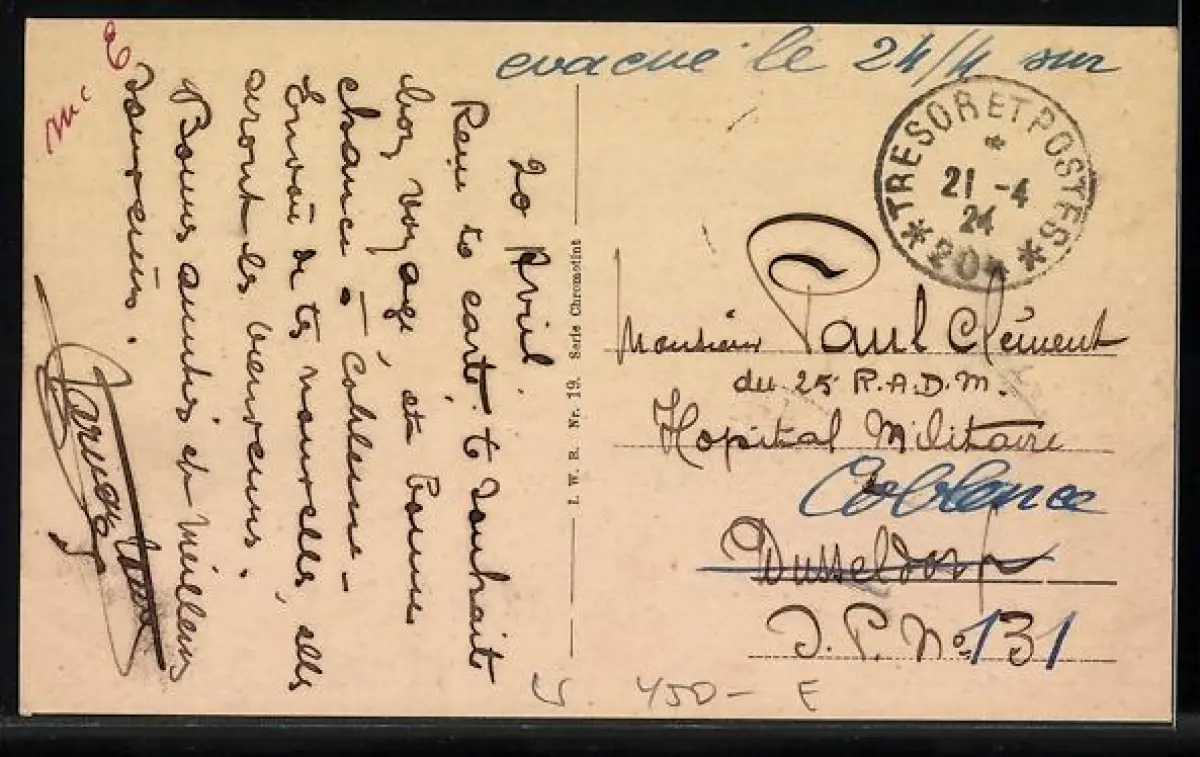 20 Avril
Reçu ta carte. te souhaite
bon voyage, et bonne
chance à Coblence -
Envoie de tes nouvelles, elles
seront les bienvenues.
Bonnes amitiés et meilleurs
souvenirs.
I. W. R. Nr. 19. Serie Chromotint
evacué le 24/4 sur
TRESOR ET POSTES
*
21 -4
24
* 204 *
Monsieur Paul Clément
du 25 R.A.D.M.
Hopital Militaire
Coblence
Dusseldorf
S. P. No 131
450 - F